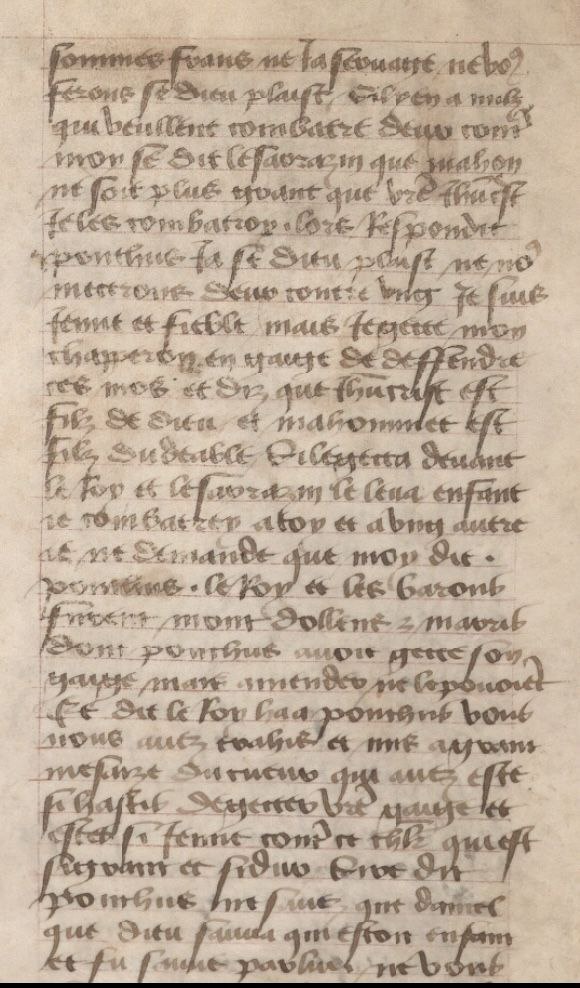 sommes frans ne ja servaige ne vo9
ferons se dieu plaist Sil yen a nulz
qui veullent combatre deux contre
moy se dit le sarrazin que mahon
ne soit plus grant que vre ihucst
Je les combatroy . lors Respondit
ponthus Ja se dieu plaist ne no9
mectrons deux contre ung Je suis
Jenne et fieble mais Je gecte mon
chapperon en gaige de deffendre
ces mos et diz que ihucrist est
filz de dieu et mahommet est
filz du deable Si le gecta devant
le Roy et le sarrazin le leva enfant
ie combatrey a toy et a ung autre
ie ne demande que moy dit .
ponthus . le Roy et les barons
furent mont dollens z marris
dont ponthus avoit gecte son
gaige mais amender ne le povoiet
Et dit le Roy haa ponthus vous
nous avez trahis et mis a grant
mesaize du cueur qui avez este
si hastis de gecter vre gaige et
estes si Jenne contre ce chlr qui est
si grant et si dur Sire dit
ponthus ne suis que daniel
que dieu sauva qui estoit enfant
et fu saint ne vous